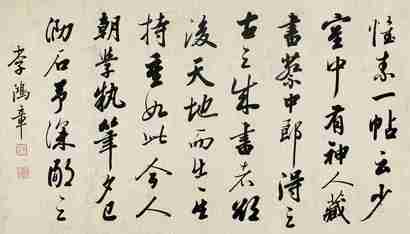 懷素一帖云少
室中有神人藏
書蔡中郎得之
古之成書者欲
後天地而
持重如此今人
朝學執筆夕已
泐石予深鄙之
李鴻章